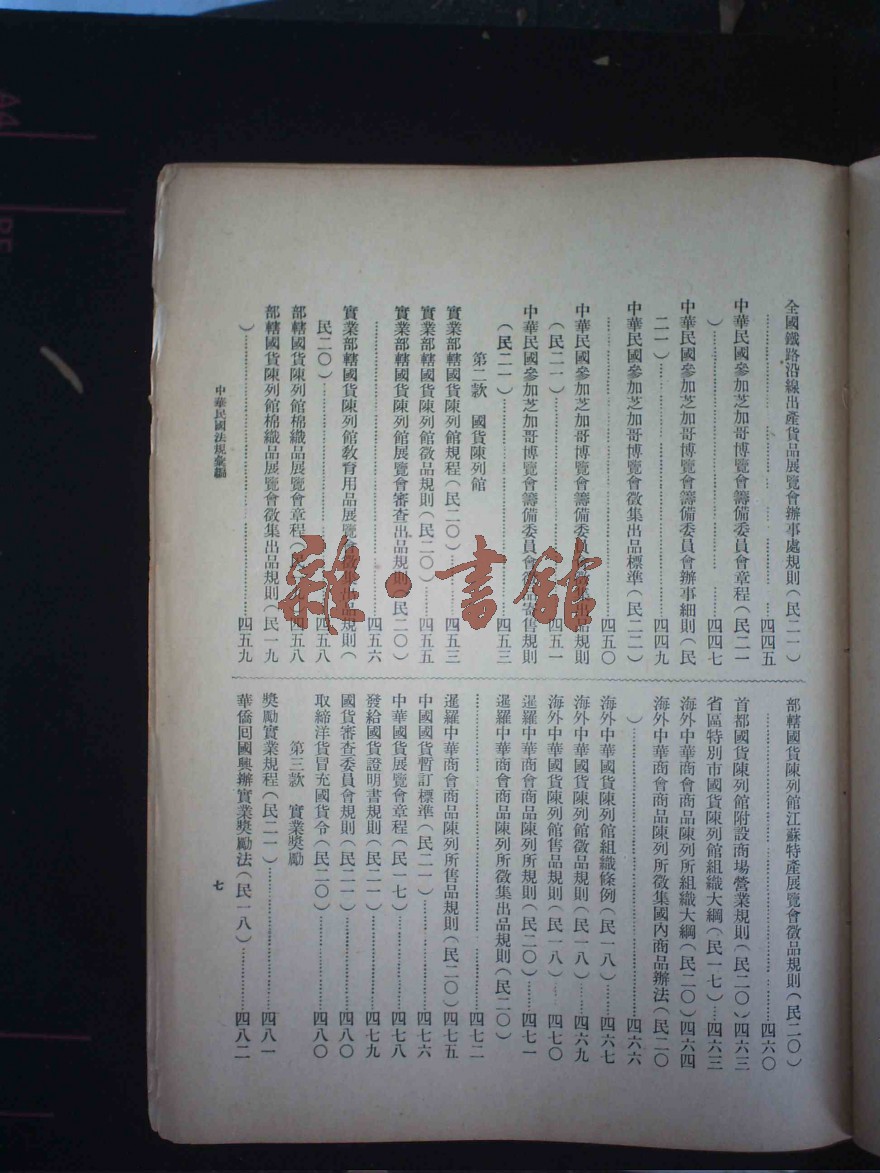 全國鐵路沿線出產貨品展覽會辦事處規則（民二一）
……………………四四五
中華民國參加芝加哥博覽會籌備委員會章程（民二一
）……………………四四七
中華民國參加芝加哥博覽會籌備委員會辦事細則（民
二一）……………………四四九
中華民國參加芝加哥博覽會徵集出品標準（民二二）
……………………四五〇
中華民國參加芝加哥博覽會籌備委員會徵集出品規則
（民二一）……………………四五一
中華民國參加芝加哥博覽會籌備委員會 品寄售規則
（民二一）……………………四五三
第二款　國貨陳列館
實業部轄國貨陳列館規程（民二〇）……四五三
實業部轄國貨陳列館徵品規則（民二〇）……四五五
實業部轄國貨陳列館展覽會審查出品規則（民二〇）
……………………四五六
實業部轄國貨陳列館教育用品展覽會徵集出品規則（
民二〇）……………………四五八
部轄國貨陳列館棉織品展覽會章程（民一九）四五八
部轄國貨陳列館棉織品展覽會徵集出品規則（民一九
）……………………四五九
部轄國貨陳列館江蘇特產展覽會徵品規則（民二〇）
……………………四六〇
首都國貨陳列館附設商場營業規則（民二〇）四六三
省區特別市國貨陳列館組織大綱（民一七）……四六三
海外中華商會商品陳列所組織大綱（民二〇）四六四
海外中華商會商品陳列所徵集國內商品辦法（民二〇
）……………………四六六
海外中華國貨陳列館組織條例（民一八）……四六七
海外中華國貨陳列館徵品規則（民一八）……四六九
海外中華國貨陳列館售品規則（民一八）……四七〇
暹羅中華商會商品陳列所規則（民二〇）……四七一
暹羅中華商會商品陳列所徵集出品規則（民二〇）
……………………四七二
暹羅中華商會商品陳列所售品規則（民二〇）四七五
中國國貨暫訂標準（民二一）……………四七六
中華國貨展覽會章程（民一七）……………四七八
發給國貨證明書規則（民二一）……………四七九
國貨審查委員會規則（民二一）……………四八〇
取締洋貨冒充國貨令（民二〇）……………四八〇
第三款　實業獎勵
獎勵實業規程（民二一）……………………四八一
華僑回國興辦實業獎勵法（民一八）…………四八二
中華民國法規彙編
七
雜·書館